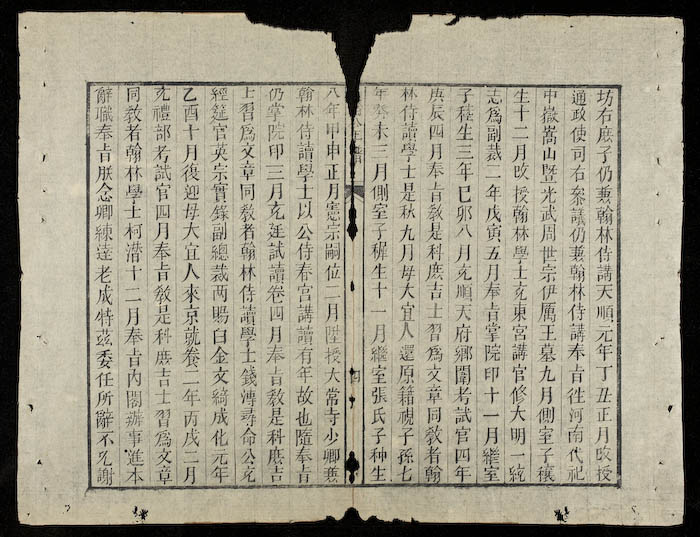 坊右庶子仍兼翰林侍講天順元年丁丑正月改授
通政使司右參議仍兼翰林侍講奉旨徃河南代祀
中嶽嵩山曁光武周世宗伊厲王墓九月側室子穰
生十二月改授翰林學士充東宮講官修大明一統
志爲副裁二年戊寅五月奉旨掌院印十一月繼室
子穜生三年己卯八月充順天府鄉闈考試官四年
庚辰四月奉旨敎是科庶吉士習爲文章同敎者翰
林侍讀學士是秋九月母大宜人還原籍視子孫七
年癸未三月側室子穉生十一月繼室張氏子种生
四
八年甲申正月憲宗嗣位二月陞授大常寺少卿兼
翰林侍讀學士以公侍春宮講讀有年故也隨奉旨
仍掌院印三月充廷試讀卷四月奉旨敎是科庶吉
士習爲文章同敎者翰林侍讀學士錢溥尋命公充
經筵官英宗實錄副總裁两賜白金文綺成化元年
乙酉十月復迎母大宜人來京就養二年丙戌二月
充禮部考試官四月奉旨敎是科庶吉士習爲文章
同敎者翰林學士柯潛十二月奉旨內閣辦事進本
辭職奉旨朕念卿練達老成特茲委任所辭不允謝